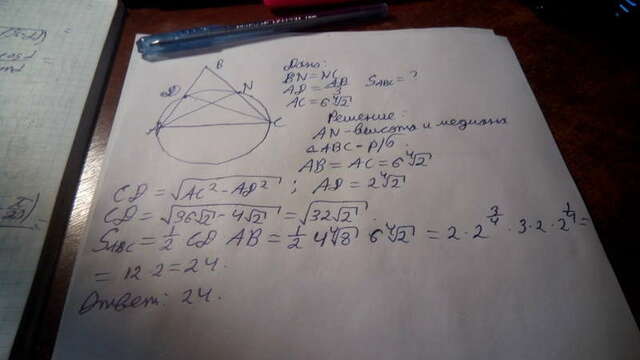 B
D
N
A
C
Дано:
BN = NC
AD = AB/3
S_ABC = ?
AC = 6∜2
Решение:
AN - высота и медиана
△ABC - р/б.
AB = AC = 6∜2
CD = √(AC² - AD²) ; AD = 2∜2
CD = √(36√2 - 4√2) = √(32√2) .
S_ABC = 1/2 CD AB = 1/2 4∜8 6∜2 = 2 · 2^(3/4) · 3 · 2 · 2^(1/4) =
= 12 · 2 = 24 .
Ответ: 24.